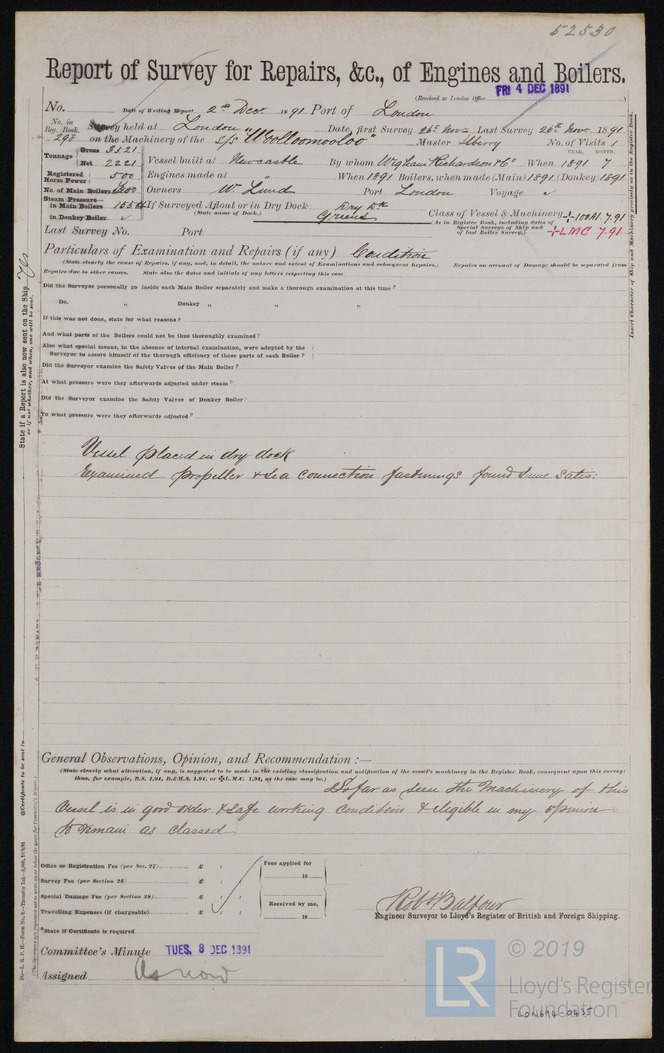 52530
Report of Survey for Repairs, &c., of Engines and Boilers.
(Received at London Office FRI 4 DEC 1891)
No. Date of Writing Report 2nd Dec 1891 Port of London
No. in Reg. Book. Survey held at London Date, first Survey 26th Nov Last Survey 26th Nov 1891
298 on the Machinery of the S/s "Woolloomooloo" Master No. of Visits 1
YEAR. MONTH.
Tonnage Gross 3521
Net 2221 Vessel built at Newcastle By whom Wigham Richardson & Co When 1891 7
Registered Horse Power 500 Engines made at " When 1891 Boilers, when made (Main) 1891 (Donkey) 1891
No. of Main Boilers Owners W. Lund Port London Voyage ✓
Steam Pressure in Main Boilers If Surveyed Afloat or in Dry Dock Dry Dk
(State name of Dock.) Greens Class of Vessel & Machinery ✠100A1 7.91
in Donkey Boiler ✓ As in Register Book, including dates of Special Surveys of Ship and of last Boiler Survey.) ✠LMC 7.91
Last Survey No. Port
Particulars of Examination and Repairs (if any) Condition
(State clearly the cause of Repairs, if any, and, in detail, the nature and extent of Examinations and subsequent Repairs.) Repairs on account of Damage should be separated from
Repairs due to other causes. State also the dates and initials of any letters respecting this case
Did the Surveyor personally go inside each Main Boiler separately and make a thorough examination at this time?
Do. " Donkey " " "
If this was not done, state for what reasons?
And what parts of the Boilers could not be thus thoroughly examined?
Also what special means, in the absence of internal examination, were adopted by the
Surveyor to assure himself of the thorough efficiency of those parts of each Boiler?
Did the Surveyor examine the Safety Valves of the Main Boiler?
At what pressure were they afterwards adjusted under steam?
Did the Surveyor examine the Safety Valves of Donkey Boiler?
To what pressure were they afterwards adjusted?
Vessel placed in dry dock
Examined propeller & sea connection fastenings found same satis:
General Observations, Opinion, and Recommendation :—
(State clearly what alteration, if any, is suggested to be made in the existing classification and notification of the vessel's machinery in the Register Book, consequent upon this survey:
thus, for example, B.S. 1,91, B.&M.S. 1,91, or ✠L.M.C. 1,91, as the case may be.)
So far as seen the Machinery of this
Vessel is in good order & safe working condition & eligible in my opinion
to remain as classed
Office or Registration Fee (per Sec. 27) £ : :
Survey Fee (per Section 28) £ : :
Special Damage Fee (per Section 28) £ : :
Travelling Expenses (if chargeable) £ : :
Fees applied for
18
Received by me,
18
Robt Balfour
Engineer Surveyor to Lloyd's Register of British and Foreign Shipping.
*State if Certificate is required
Committee's Minute TUES. 8 DEC 1891
Assigned As now
State if a Report is also now sent on the Ship Yes
or if not whether, and when, one will be sent.
Insert Character of Ship and Machinery precisely as in the Register Book.
@Certificate to be sent to
© 2019
LR
Lloyd's Register
Foundation
LON694-0435